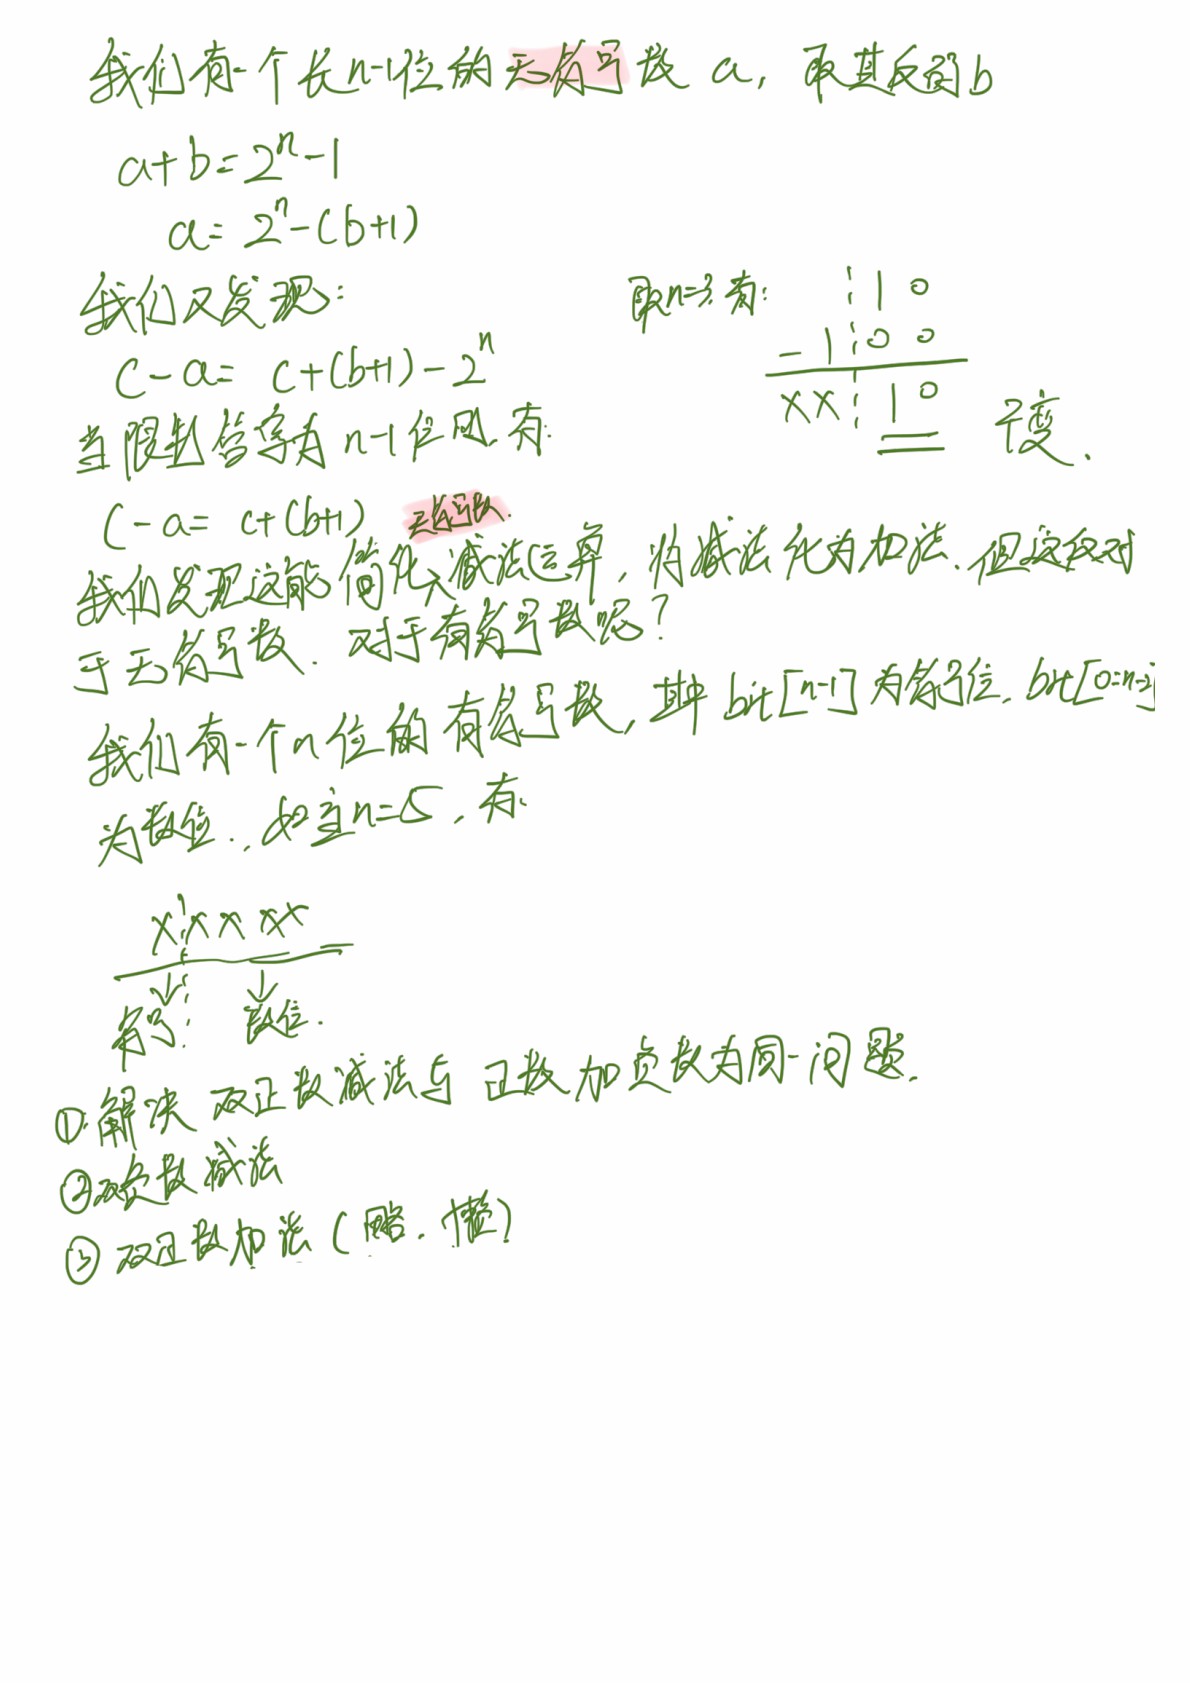 我们有一个长n-1位的无符号数 a, 取其反码b
a+b=2ⁿ-1
a=2ⁿ-(b+1)
我们又发现:
c-a= c+(b+1)-2ⁿ
取n=3.有:
1 0
- 1 0 0
x x 1 0 不变.
当限制字为 n-1位时.有:
c-a= c+(b+1) 无符号数.
我们发现这能简化减法运算, 将减法化为加法. 但这仅对
于无符号数. 对于有符号数呢?
我们有一个n位的有符号数, 其中 bit[n-1] 为符号位. bit[0=n-2]
为数位., 如当n=5, 有:
x x x x x
符号 数位.
①解决 双正数减法与 正数加负数为同一问题.
②双负数减法
③双正数加法(略.懒)